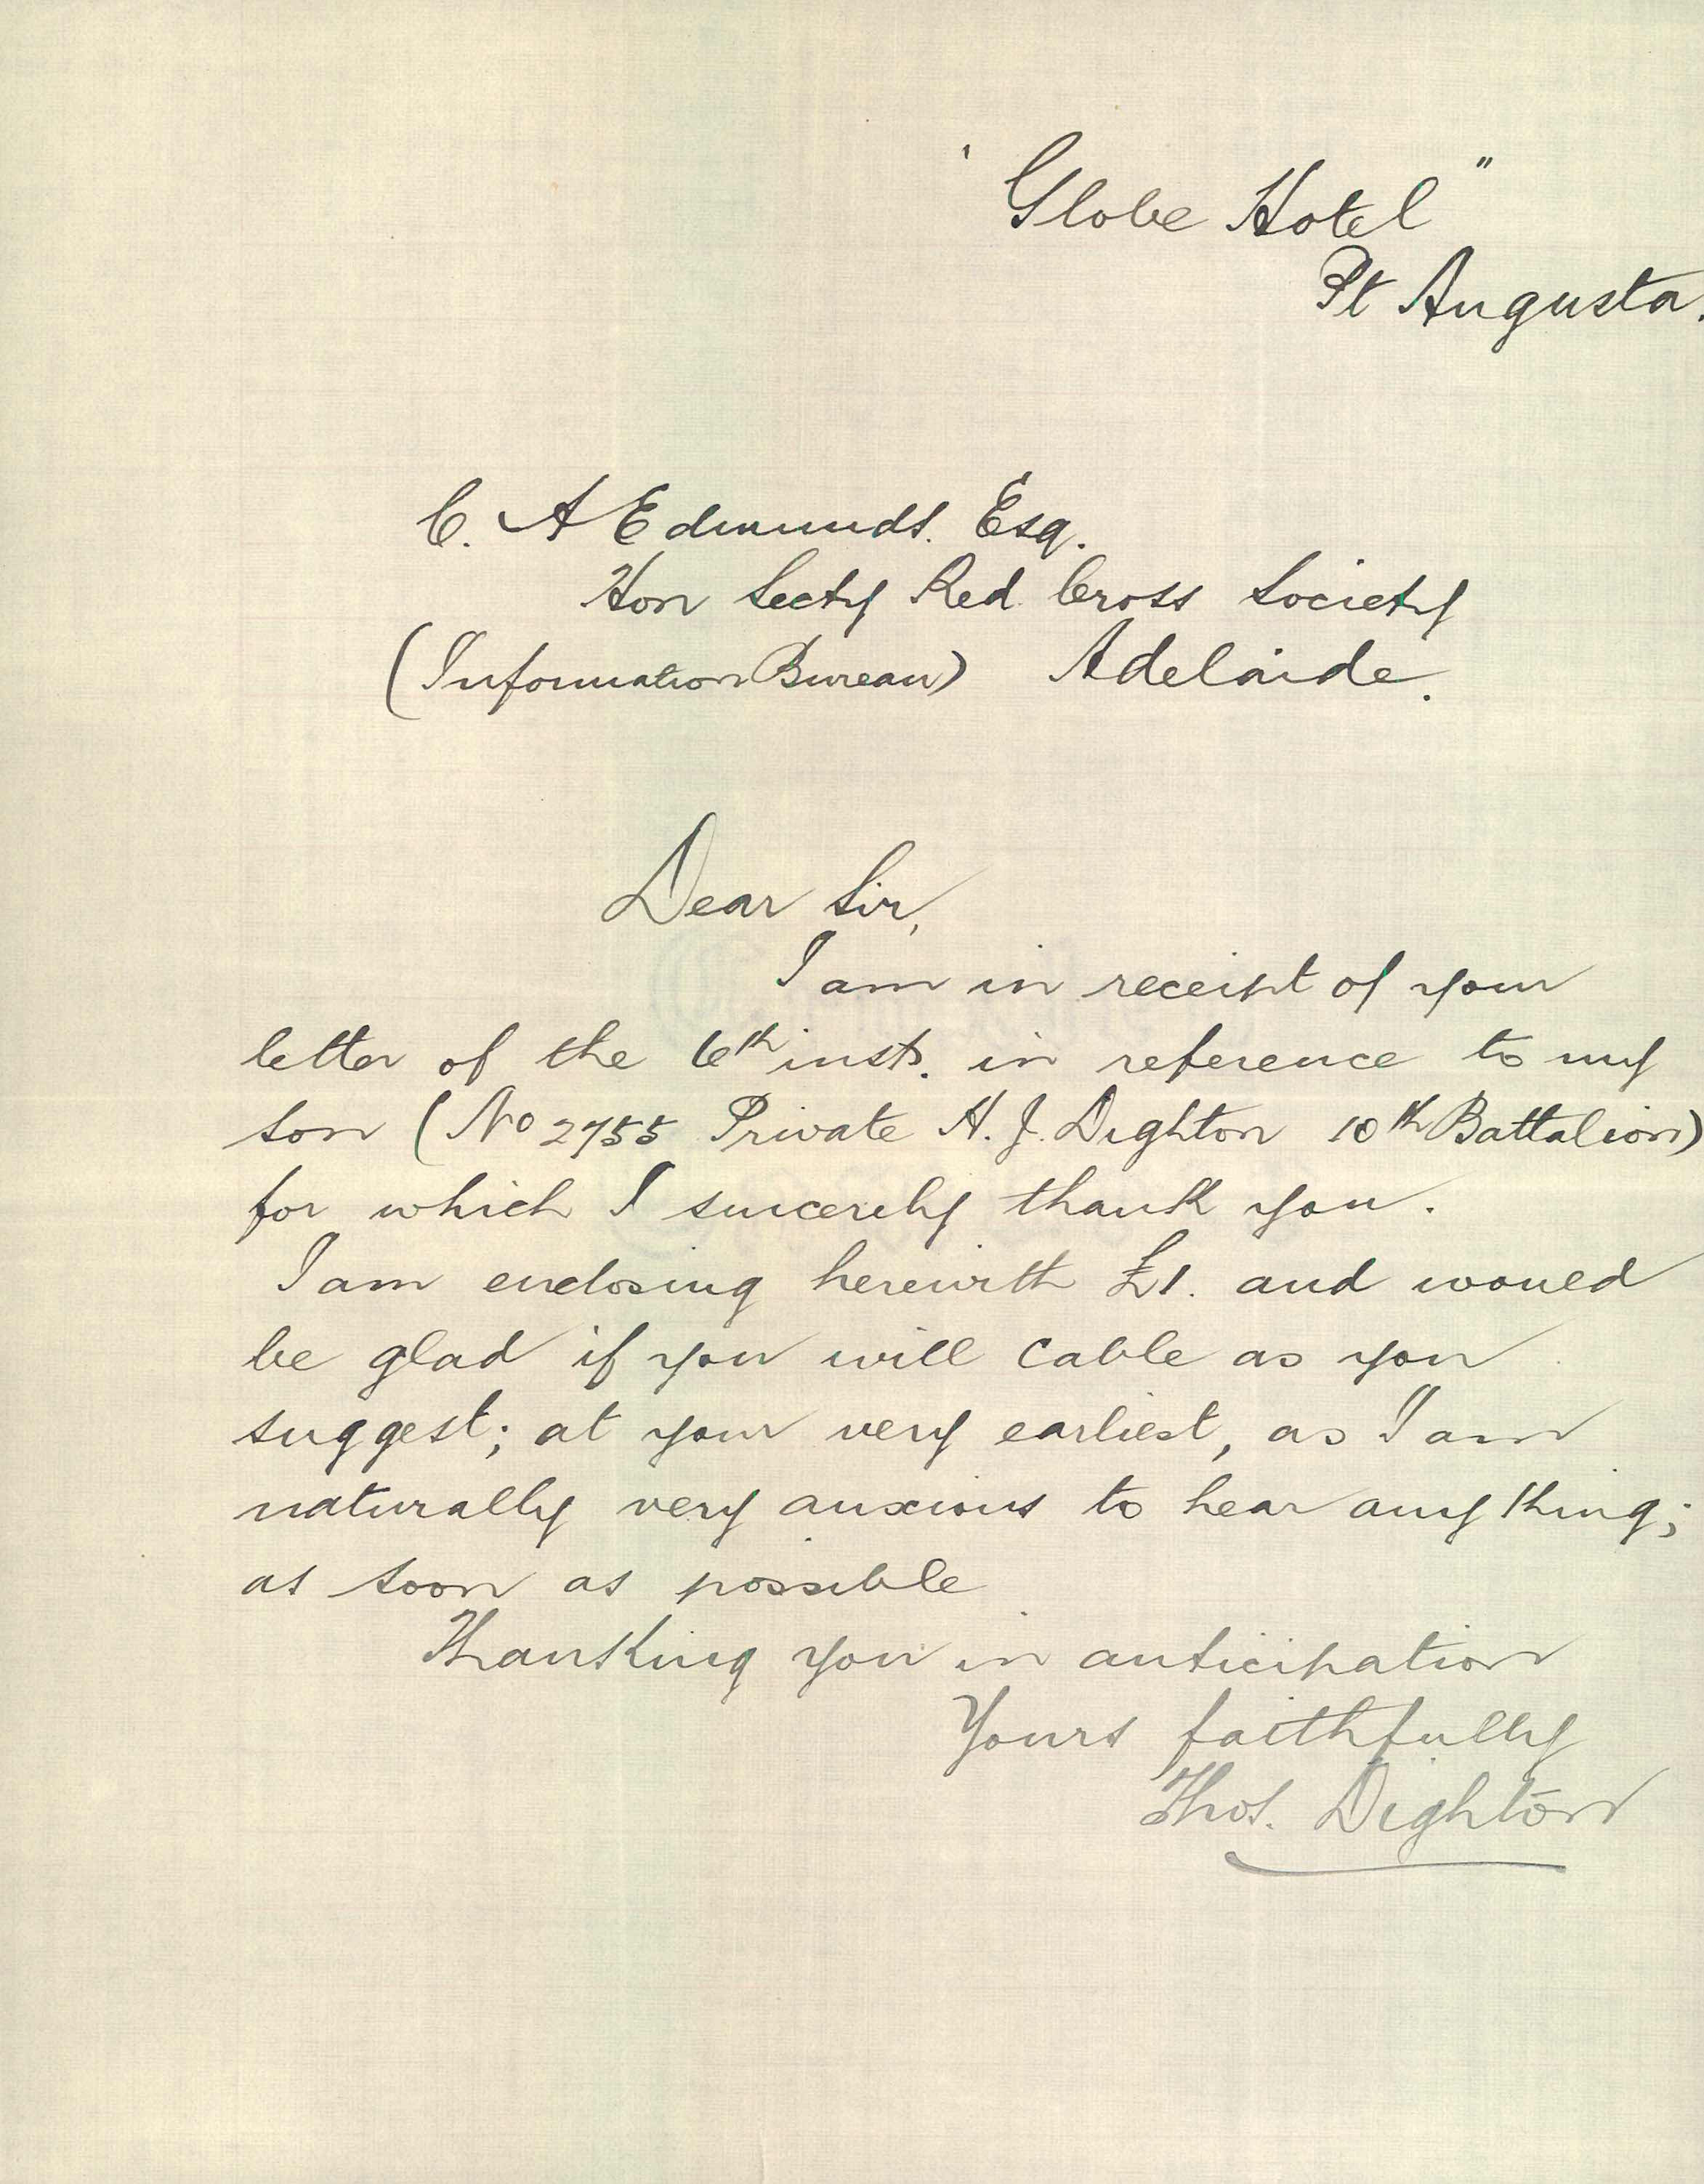 ' Globe Hotel "
Pt Augusta.
C. A Edmunds. Esq.
Hon Secty Red Cross Society
(Information Bureau) Adelaide.
Dear Sir,
I am in receipt of your
letter of the 6th inst. in reference to my
son (No 2755 Private H. J. Dighton 10th Battalion)
for which I sincerely thank you.
I am enclosing herewith £1. and would
be glad if you will cable as you
suggest; at your very earliest, as I am
naturally very anxious to hear any thing;
as soon as possible
Thanking you in anticipation
Yours faithfully
Thos. Dighton